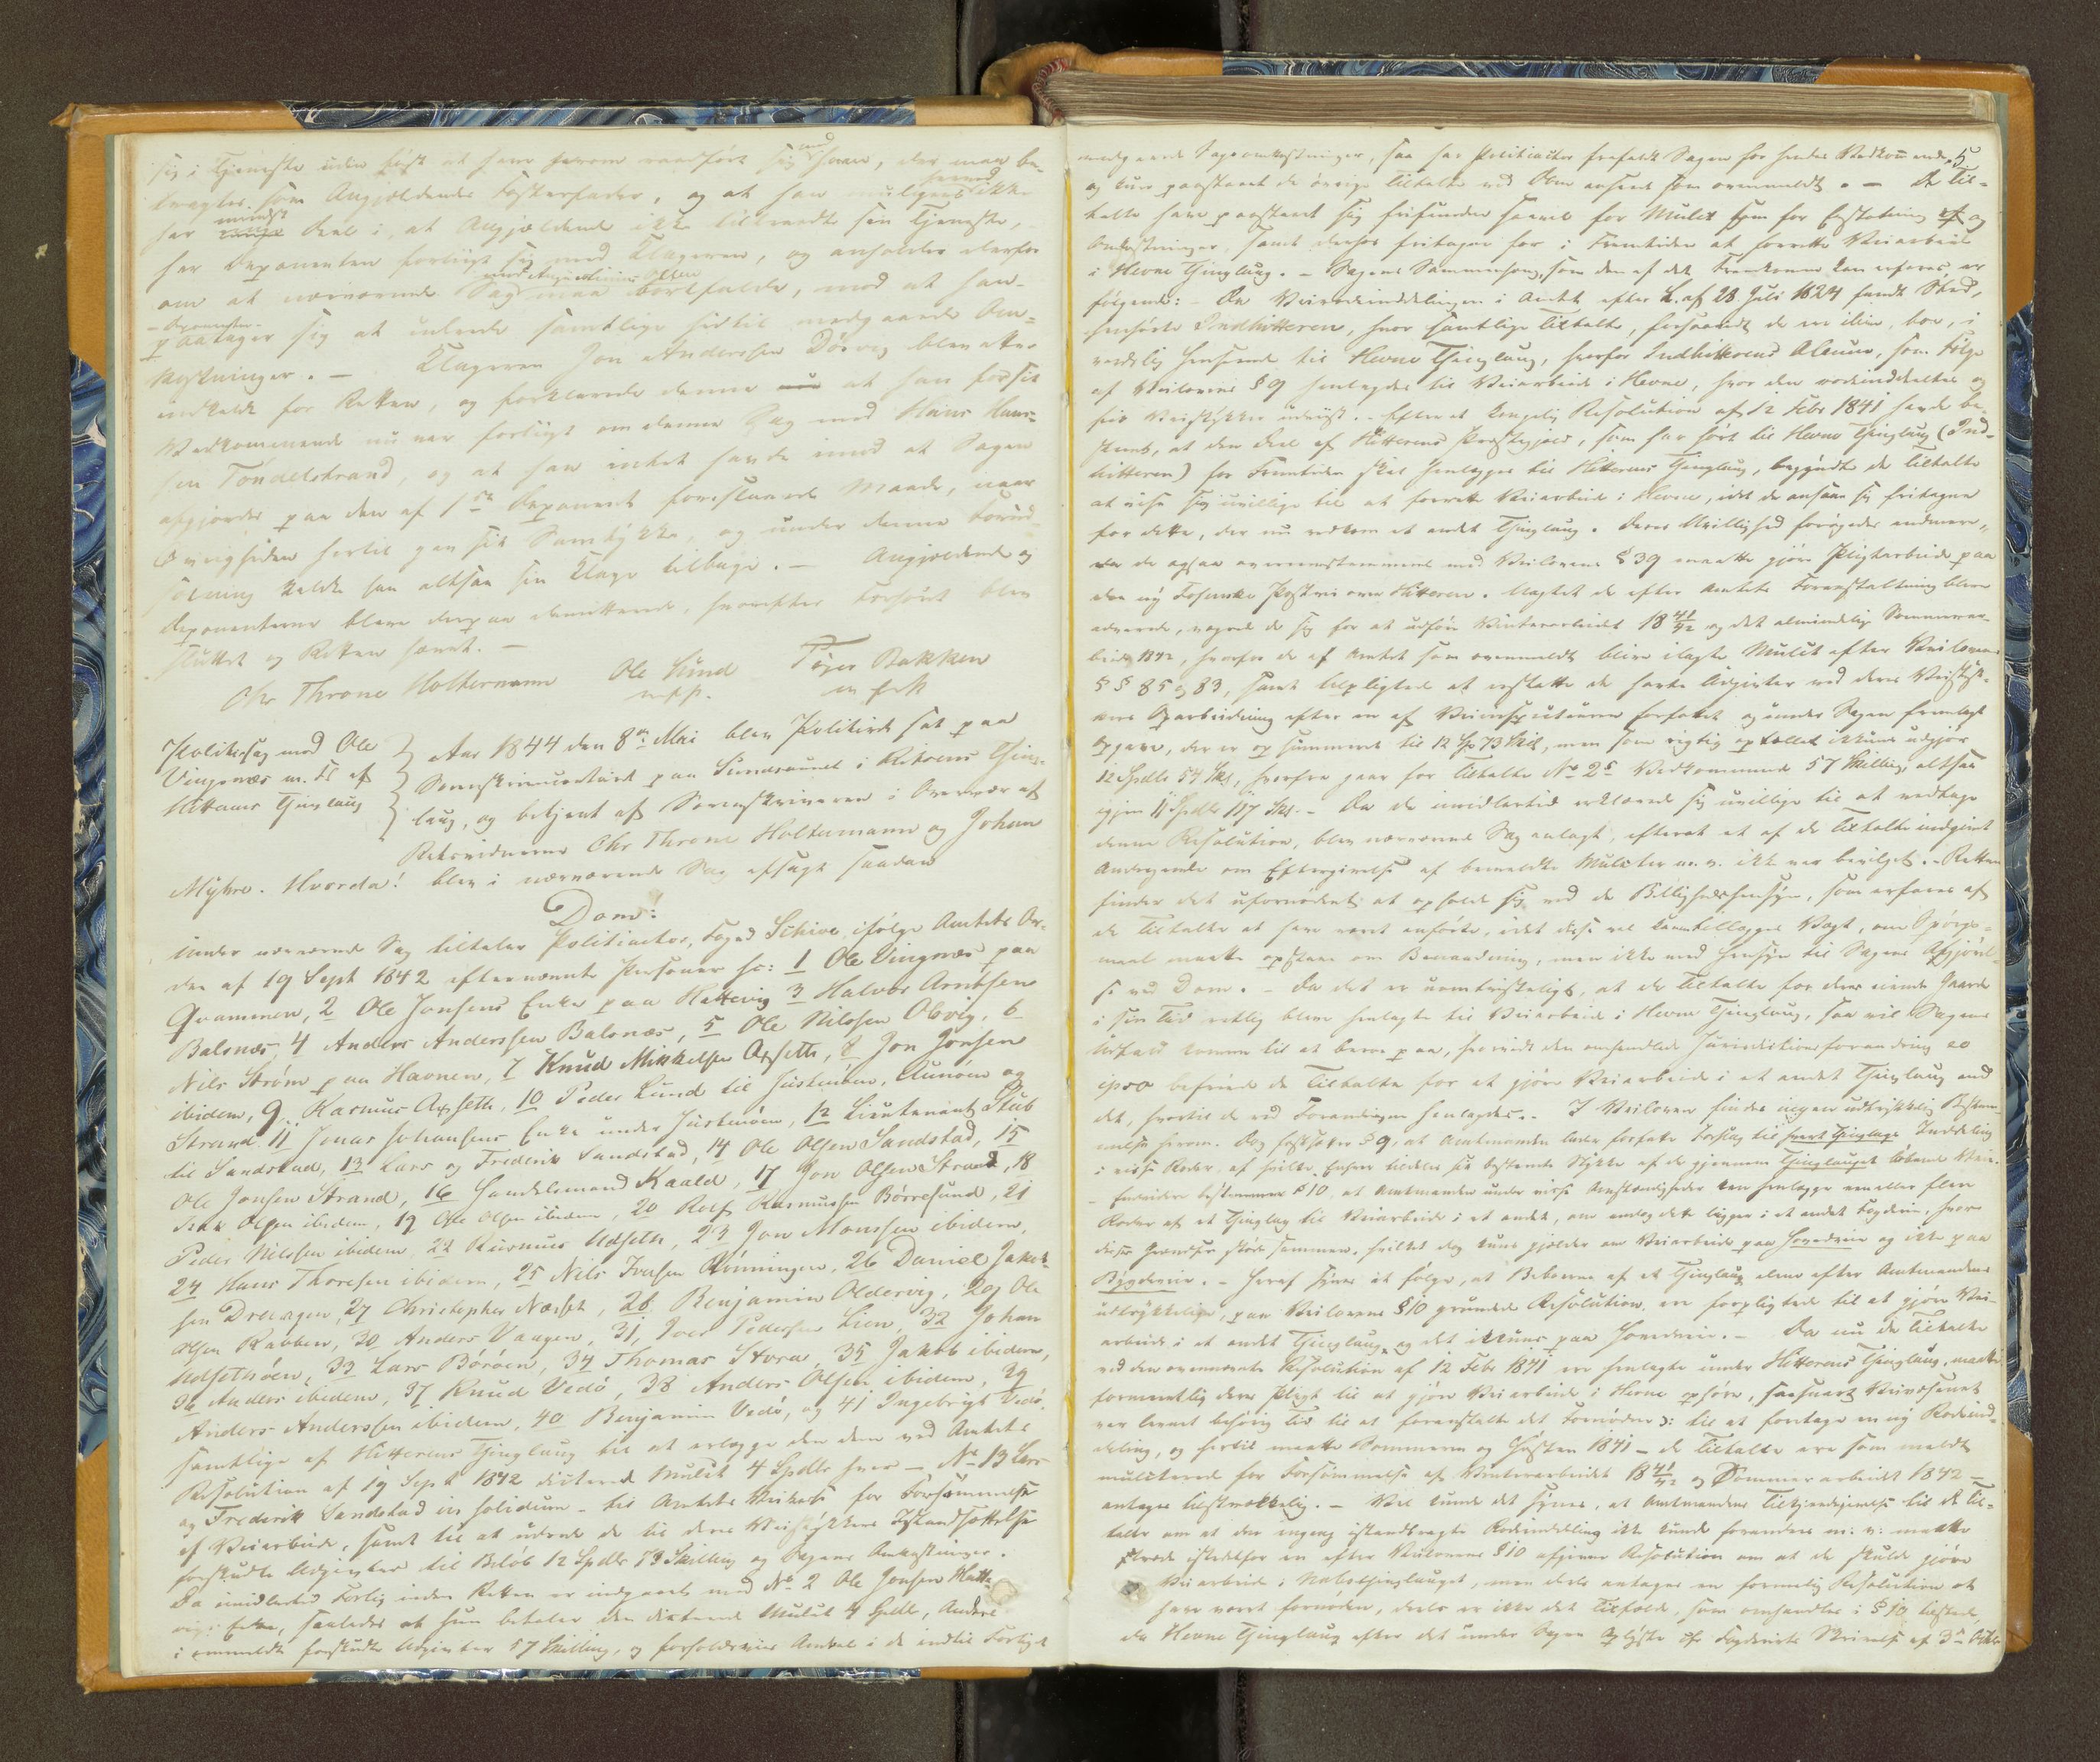 sig i Tjeneste uden først at have herom raadført sig med ham, der maa be-
tragtes som Angjældendes Fosterfader, og at han muligens herved ikke
har mindst Deel i, at Angjældende ikke tiltraadte sin Tjeneste,
har Deponenten forligt sig med Klageren, og anholder derfor
om at nærværende Sag mod Angjældende Olsen maa bortfalde, mod at han
- Deponenten -
paatager sig at udrede samtlige hidtil medgaaede Om-
kostninger. — Klageren Jon Andersen Dösvig blev atter
indkaldt for Retten, og forklarede denne at han for sit
Vedkommende nu var forligt om denne Sag med Hans Han-
sen Töndelstrand, og at han intet havde imod at Sagen
afgjordes paa den af 1ste Deponent foreslaaede Maade, naar
Øvrigheden hertil gav sit Samtykke, og under denne Forud-
sætning kaldte han altsaa sin Klage tilbage. — Angjældende og
Deponenterne bleve derpaa demitterede, hvorefter Forhöret blev
sluttet og Retten hævet. —
Chr Throne Holtermann Ole Lund Töger Bakken
m.p.p.
Politiesag mod Ole
Vingenæs m. Fl af
Hitterens Tjinglaug
Aar 1844 den 8de Mai blev Politieret sat paa
Sorenskrivercontoiret paa Sundsaunet i Tjing-
laug, og betjent af Sorenskriveren i Overvær af
Retsvidnerne Chr Throne Holtermann og Johan
Myhre. Hvorda! blev i nærværende Sag afsagt saadan
Dom:
Under nærværende Sag tiltaler Politiactor, Foged Schive ifølge Amtets Or-
dre af 19 Sept 1842 efternævnte Personer sc: 1 Ole Vingnæs paa
Qvammen, 2 Ole Jonsens Enke paa Hattevig 3 Halvor Arntsen
Balsnæs, 4 Anders Anderssen Balsnæs, 5 Ole Nilssen Olvig, 6
Nils Ström paa Havnen, 7 Knud Mikkelsen Axseth, 8 Jon Jonsen
ibidem, 9. Rasmus Axseth, 10 Peder Lund til Justnöen, Aunöen og
Strand. 11 Jonas Johansens Enke under Justnöen, 12 Lieutenant Stub
til Sandstad, 13 Lars og Frederik Sandstad, 14 Ole Olsen Sandstad, 15
Ole Jonsen Strand, 16 Handelsmand Kaald, 17 Jon Olsen Strand, 18
Olsen ibidem, 19 Ole Olsen ibidem, 20 Rolf Rasmussen Börresund, 21
Peder Nilssen ibidem, 22 Rasmus Udseth, 23 Jon Monssen ibidem,
24 Hans Thoresen ibidem, 25 Nils Iversen Rönningen, 26 Daniel Jakob-
sen Dragen, 27 Christopher Næsset, 28 Benjamin Oldervig, 29 Ole
Olsen Rabben, 30 Anders Vaagen, 31, Iver Pedersen Lien, 32 Johan
Udsethöen, 33 Lars Böröen, 34 Thomas Stora, 35 Jakob ibidem,
36 Anders ibidem, 37 Knud Vedö, 38 Anders Olsen ibidem, 39
Anders Anderssen ibidem, 40 Benjamin Vedö, og 41 Ingebrigt Vedö,
samtlige af Hitterens Tjinglaug til at erlægge den dem ved Amtets
Resolution af 19 Sept 1842 dicterede Mulct 4 Spdlr hver — No 13 Lars
og Fredrik Sandstad in solidum - til Amtets Veikasse for Forsømmelse
af Veiarbeide, samt til at udrede de til deres Veistykkers Istandsættelse
forskudte Udgivter til Beløb 12 Spdlr 73 Skilling og Sagens Omkostninger.
Da imidlertid Forlig inden Retten er indgaaet med No 2 Ole Jonsen Hatte-
vigs Enke, saaledes at hun betaler den dicterede Mulct 4 Spdlr, Andeel
i ommeldte forskudte Udgivter 57 Skilling, og forholdsviis Andeel i de indtil Forliget
medgaaede Sagsomkostninger, saa har Politiactor frafaldt Sagen for hendes Vedkommende,
5
og kun paastaaet de övrige Tiltalte ved Dom anseet som ovenmeldt. — De Til-
talte have paastaaet sig frifundne saavel for Mulct som for Erstatning og
Omkostninger, samt derhos fritagne for i Fremtiden at forrette Veiarbeide
i Hevne Tjinglaug. — Sagens Sammenhæng, som den af det Fremkomne kan erfares, er
følgende: - Da Veirodeinddelingen i Amtet efter L. af 28 Juli 1824 fandt Sted,
henhørte Indhitteren, hvor samtlige Tiltalte, forsaavidt de ere ilive, boe, i
verdslig Henseende til Hevne Tjinglaug, hvorfor Indhitterens Almue, som Følge
af Veilovens § 9 henlagdes til Veiarbeide i Hevne, hvor den rodeinddeeltes og
fik Veistykker udviist. - Efterat kongelig Resolution af 12 Febr 1841 havde be-
stemt, at den Deel af Hitterens Præstegjeld, som har hört til Hevne Tjinglaug (Ind-
hitteren) for Fremtiden skal henlægges til Hitterens Tjinglaug, begyndte de Tiltalte
at vise sig uvillige til at forrette Veiarbeide i Hevne, idet de ansaae sig fritagne
for dette, der nu vedkom et andet Tjinglaug. Deres Uvillighed forøgedes endmere,
da de ogsaa overeensstemmende med Veilovens § 39 maatte gjöre Pligtarbeide paa
den ny Fosenske Postvei over Hitteren. Uagtet de efter Amtets Foranstaltning bleve
advarede, vægrede de sig for at udføre Vinterarbeidet 1841/42 og det almindelige Sommerar-
beide 1842, hvorfor de af Amtet som ovenmeldt bleve ilagte Mulct efter Veilovens
§ § 85 og 83, samt tilpligtede at erstatte de havte Udgivter ved deres Veistyk-
kers Oparbeidning efter en af Veiinspecteuren forfattet og under Sagen fremlagt
Opgave, der er opsummeret til 12 Sp 73 Skil, men som rigtig optællet ikkuns udgjør
12 Spdlr 54 Sk, hvorfra gaar for Tiltalte No 2s Vedkommende 57 Skilling, altsaa
igjen 11 Spdlr 117 Sk. - Da de imidlertid erklærede sig uvillige til at vedtage
denne Resolution, blev nærværende Sag anlagt, efterat et af de Tiltalte indgivet
Andragende om Eftergivelse af bemeldte Mulcter m. v. ikke var bevilget. - Retten
finder det ufornødent at opholde sig ved de Billighedshensyn, som erfares af
de Tiltalte at have været anførte, idet disse vel kunne tillægges Vægt, om Spørgs-
maal maatte opstaae om Benaadning, men ikke med Hensyn til Sagens Afgjørel-
se ved Dom. - Da det er uomtvisteligt, at de Tiltalte for deres Gaarde
i sin Tid rettelig bleve henlagte til Veiarbeide i Hevne Tjinglaug, saa vil Sagens
Udfald komme til at beroe paa, hvorvidt den omhandlede Jurisdictionsforandring eo
ipso befriede de Tiltalte for at gjøre Veiarbeide i et andet Tjinglaug end
det, hvortil de ved Forandringen henlagdes. - I Veiloven findes ingen udtrykkelig Bestem-
melse herom. Dog fastsætter § 9, at Amtmanden lader forfatte Forslag til hvert Tjinglags Inddeling
i visse Roder, af hvilke enhver tildeles sit bestemte Stykke af de gjennem Tjinglauget løbende Veie.
- Endvidere bestemmer § 10, at Amtmanden under visse Omstændigheder kan henlægge een eller flere
Roder af et Tjinglag til Veiarbeide i et andet, om endog dette ligger i et andet Fogderie, hvor
disses Grændser støde sammen, hvilket dog kuns gjælder om Veiarbeide paa Hovedveie og ikke paa
Bygdeveie. - Heraf synes at følge, at Beboerne af et Tjinglaug alene efter Amtmandens
udtrykkelige, paa Veilovens § 10 grundede Resolution, ere forpligtede til at gjøre Vei-
arbeide i et andet Tjinglaug, og det ikkuns paa Hovedveie. - Da nu de Tiltalte
ved den ovennævnte Resolution af 12 Febr 1841 ere henlagte under Hitterens Tjinglaug, maatte
formeentlig deres Pligt til at gjøre Veiarbeide i Hevne ophøre, saasnart Veivæsenet
var levnet behörig Tid til at foranstalte det Fornødne ɔ: til at foretage en ny Rodeind-
deling, og hertil maatte Sommeren og Høsten 1841 - de Tiltalte ere som meldt
mulcterede for Forsømmelse af Vinterarbeidet 1841/42 og Sommerarbeidet 1842 -
antages tilstrækkelig. - Vel kunde det synes, at Amtmandens Tilkjendegivelse til de Til-
talte om at den engang istandbragte Rodeinddeling ikke kunde forandres m: v: maatte
træde istedetfor en efter Veilovens § 10 afgiven Resolution om at de skulde gjøre
Veiarbeide i Nabotjinglauget, men deels antages en formelig Resolution at
have været fornøden, deels er ikke det Tilfælde, som omhandles i § 10 tilstede,
da Hevne Tjinglaug efter det under Sagen Oplyste Fogderiets Skrivelse af 3die